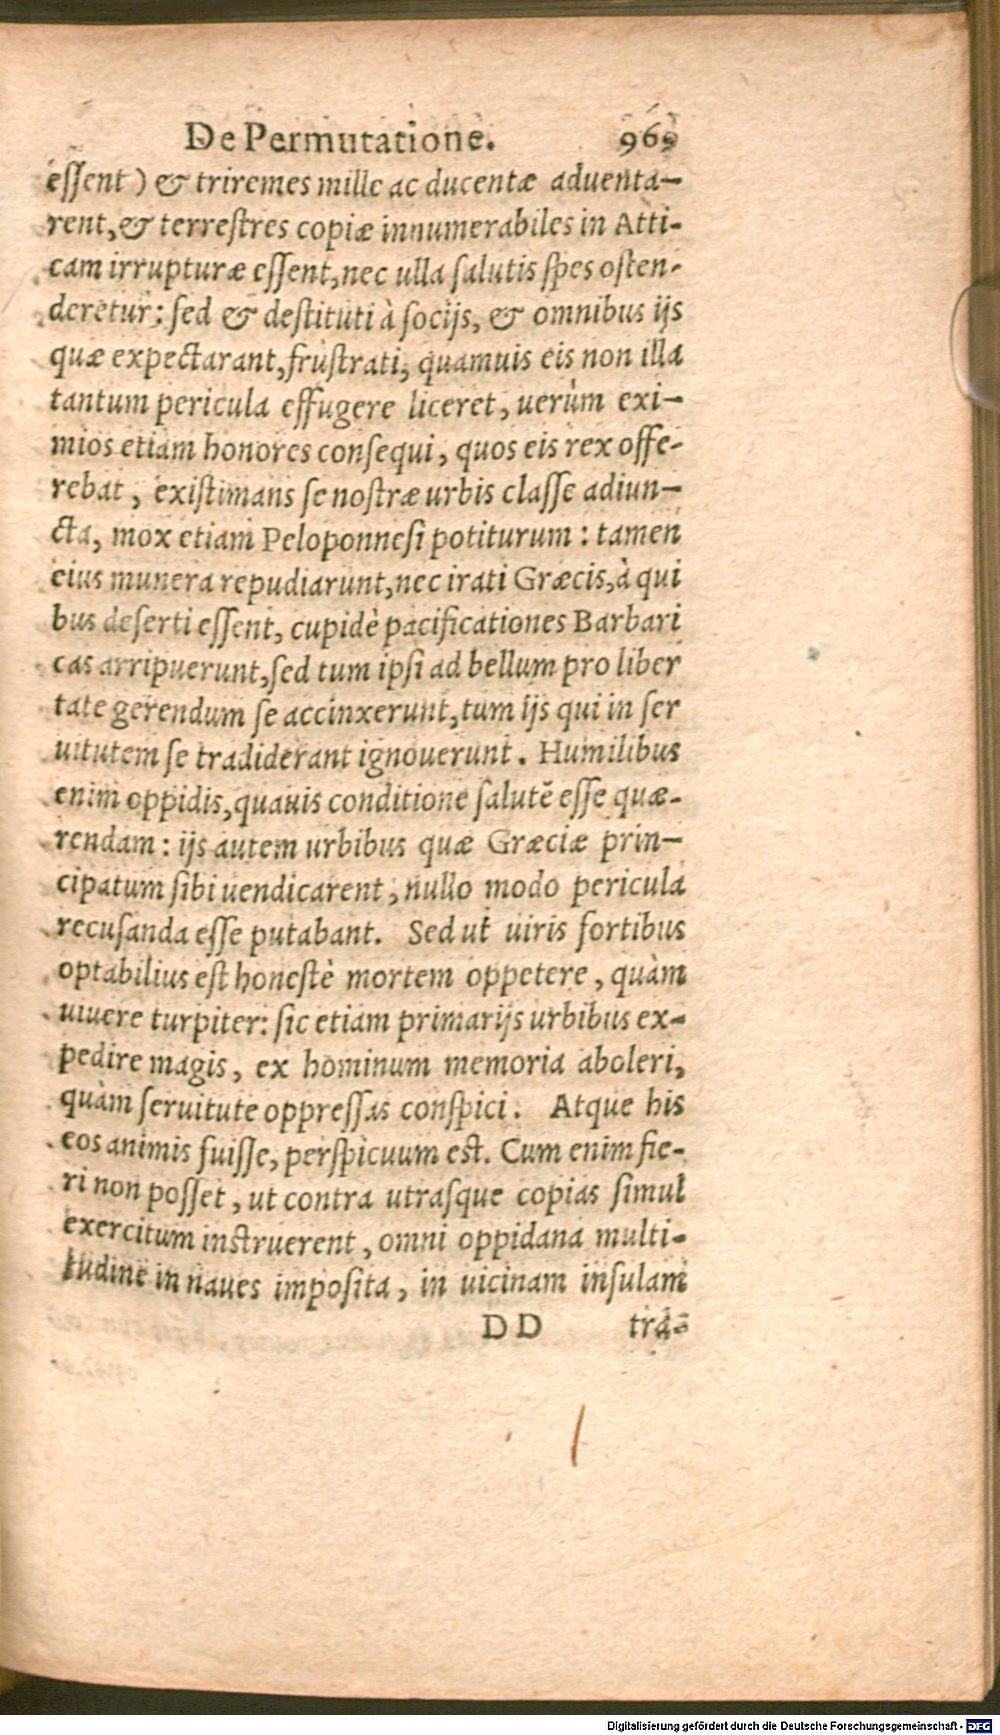 De Permutatione. 969
essent) & triremes mille ac ducentæ aduenta-
rent, & terrestres copiæ innumerabiles in Atti-
cam irrupturæ essent, nec ulla salutis spes osten-
deretur: sed & destituti à socijs, & omnibus ijs
quæ expectarant, frustrati, quamuis eis non illa
tantum pericula effugere liceret, uerùm exi-
mios etiam honores consequi, quos eis rex offe-
rebat, existimans se nostræ urbis classe adiun-
cta, mox etiam Peloponnesi potiturum: tamen
eius munera repudiarunt, nec irati Græcis, à qui
bus deserti essent, cupidè pacificationes Barbari
cas arripuerunt, sed tum ipsi ad bellum pro liber
tate gerendum se accinxerunt, tum ijs qui in ser
uitutem se tradiderant ignouerunt. Humilibus
enim oppidis, quauis conditione salutē esse quæ-
rendam: ijs autem urbibus quæ Græciæ prin-
cipatum sibi uendicarent, nullo modo pericula
recusanda esse putabant. Sed ut uiris fortibus
optabilius est honestè mortem oppetere, quàm
uiuere turpiter: sic etiam primarijs urbibus ex-
pedire magis, ex hominum memoria aboleri,
quàm seruitute oppressas conspici. Atque his
eos animis fuisse, perspicuum est. Cum enim fie-
ri non posset, ut contra utrasque copias simul
exercitum instruerent, omni oppidana multi-
tudine in naues imposita, in uicinam insulam
DD tra-
Digitalisierung gefördert durch die Deutsche Forschungsgemeinschaft - DFG